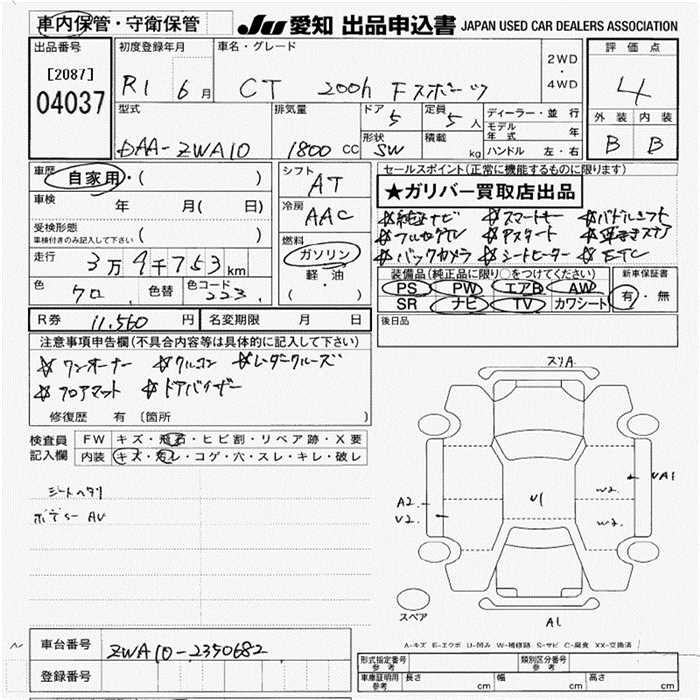 車内保管・守衛保管 JU 愛知 出品申込書 JAPAN USED CAR DEALERS ASSOCIATION
出品番号 初度登録年月 車名・グレード 2WD・4WD 評価点
[2087] R1 6月 CT 200h Fスポーツ 4
04037
型式 排気量 ドア 5 定員 5人 ディーラー・並行 外装 内装
モデル年式 年
DAA-ZWA10 1800CC 形状 SW 積載 kg ハンドル 左・右 B B
車歴 自家用・( ) シフト AT セールスポイント(正常に機能するものに限ります)
★ガリバー買取店出品
車検 年 月( 日) 冷房 AAC ☆純正ナビ ☆スマートキー ☆パドルシフト
受検形態 車検付きのみ記入して下さい ( ) 燃料 ☆フルセグTV ☆Pスタート ☆革巻きステア
ガソリン・軽・油 ☆バックカメラ ☆シートヒーター ☆ETC
走行 3万9千753km ( ) 装備品(純正品に限り○をつけてください) 新車保証書
色 クロ 色替 色コード 223 PS PW エアB AW 有・無
SR ナビ TV カワシート
R券 11,560円 名変期限 月 日 後日品
注意事項申告欄(不具合内容等は具体的に記入して下さい)
☆ワンオーナー ☆クルコン ☆レーダークルーズ
☆フロアマット ☆ドアバイザー
修復歴 有 〔箇所 〕
検査員記入欄 FW キズ・飛石・ヒビ割・リペア跡・X要
内装 キズ・汚レ・コゲ・穴・スレ・キレ・破レ
シートヘタリ
ボデー AU
スリA
A2
U2
U1
W2
W2
UA1
A1
スペア
A-キズ E-エクボ U-凹み W-補修跡 S-サビ C-腐食 XX-交換済
車台番号 ZWA10-2350682
登録番号
形式指定番号 参考 類別区分番号 参考
車庫証明用 参考 長さ cm 幅 cm 高さ cm